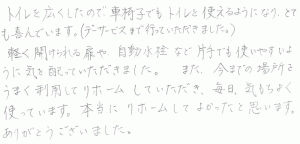 トイレを広くしたので車椅子でもトイレを使えるようになり、とて
も喜んでいます。(デーサービスまで行っていただきました。)
軽く開けられる扉や、自動水栓など片手でも使いやすいよ
うに気を配っていただきました。 また、今までの場所を
うまく利用してリホームしていただき、毎日、気もちよく
使っています。本当にリホームしてよかったと思います。
ありがとうございました。